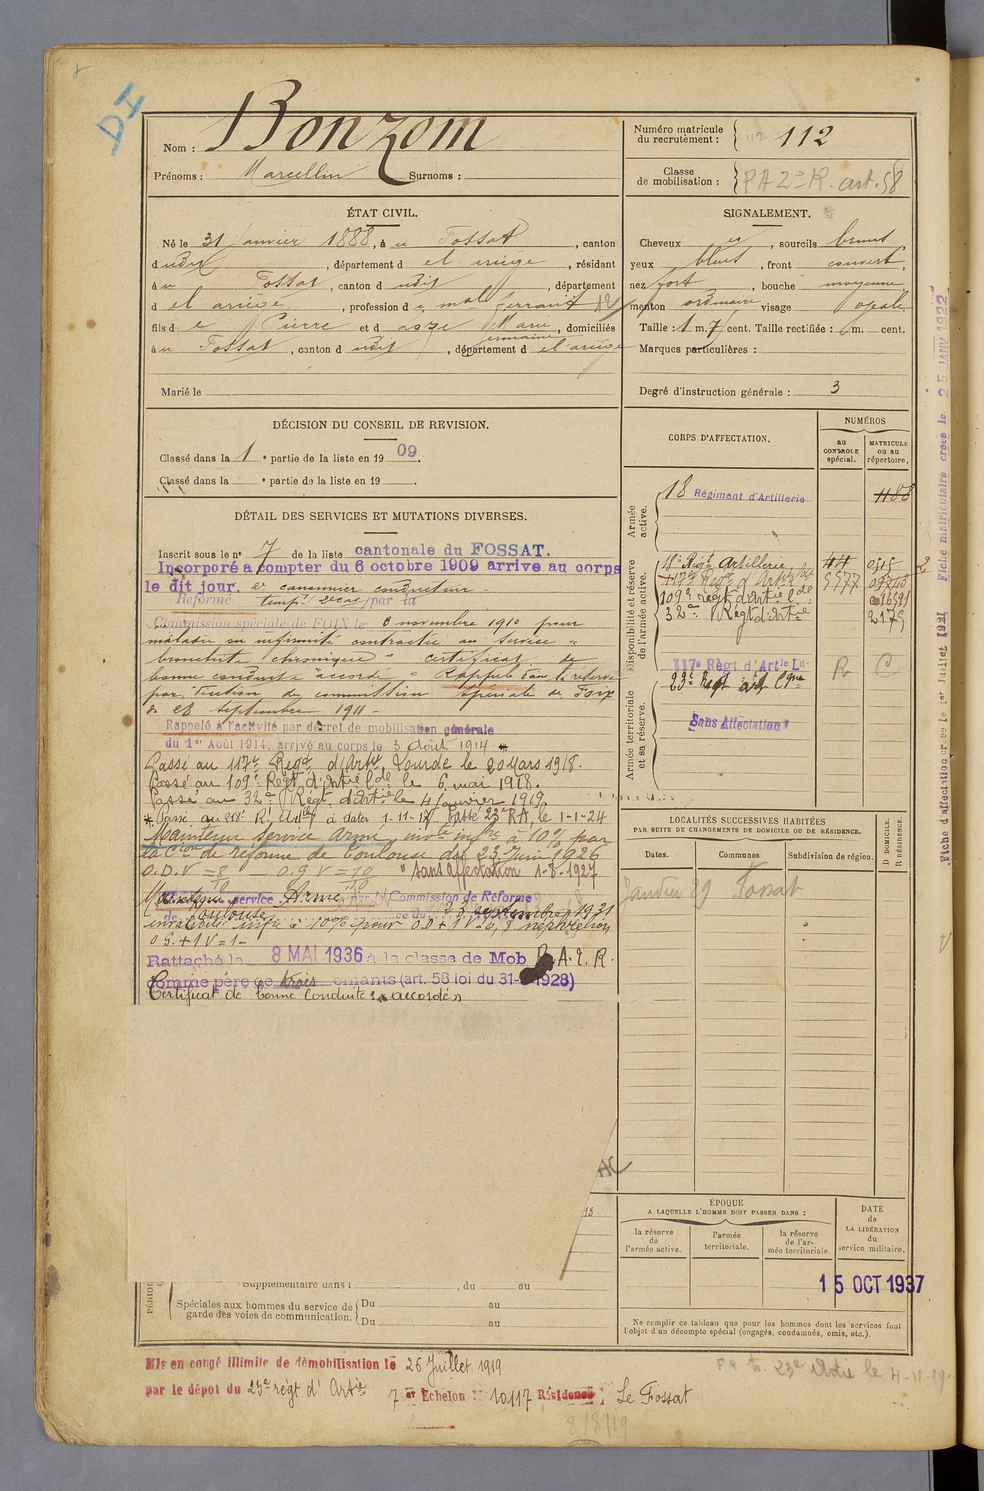 DI
Nom : Bonzom
Prénoms : Marcellin Surnoms :
Numéro matricule du recrutement : 112
Classe de mobilisation : PA 2e R. art. 58
ÉTAT CIVIL.
Né le 31 janvier 1888, à u Fossat, canton
dudit, département d el ariège, résidant
à u Fossat, canton d udit, département
d el ariège, profession d e mal ferrant
fils d e Pierre et d Marie, domiciliés
à u Fossat, canton d udit, département d el ariège
Marié le
SIGNALEMENT.
Cheveux et, sourcils bruns
yeux bleus, front couvert,
nez fort, bouche moyenne,
menton ordinaire visage ovale.
Taille : 1 m. 7 cent. Taille rectifiée : m. cent.
Marques particulières :
Degré d'instruction générale : 3
DÉCISION DU CONSEIL DE REVISION.
Classé dans la 1e partie de la liste en 1909.
Classé dans la e partie de la liste en 19 .
CORPS D'AFFECTATION.
NUMÉROS
AU CONTROLE spécial.
MATRICULE ou au répertoire.
Armée active.
18 Régiment d'Artillerie 1188
Disponibilité et réserve de l'armée active.
18e Régt Artillerie
117e Régt d'Artie Lde
109e régt d'Artie Lde
32e Régt d'Artie
117e Régt d'Artie Lde R C
Armée territoriale et sa réserve.
23e Régt art Cgne
Sans Affectation
DÉTAIL DES SERVICES ET MUTATIONS DIVERSES.
Inscrit sous le no 7 de la liste cantonale du FOSSAT.
Incorporé a compter du 6 octobre 1909 arrive au corps
le dit jour. 2e canonnier conducteur.
Réformé tempre par la
Commission spéciale de FOIX le 8 novembre 1910 pour
maladie ou infirmité contractée au service "
bronchite chronique" certificat de
bonne conduite accordé. Rappelé dans la réserve
par décision de commission spéciale de Foix
du 28 septembre 1911 -
Rappelé à l'activité par décret de mobilisation générale
du 1er Août 1914, arrivé au corps le 3 Août 1914 *
Passé au 117e Régt d'Artie Lourde le 20 Mars 1918.
Passé au 109e Régt d'Artie Lde le 6 mai 1918.
Passé au 32e Régt d'Artie le 4 janvier 1919.
* Passé au R. Artie à dater 1-11-17 Passé 23e RA, le 1-1-24
Maintenu service Armé, invte infre à 10% par
la Cion de réforme de Toulouse du 23 Juin 1926
O.D.V = 8/10 O.g V = 10/10 "Sans affectation 1-8-1927
Maintenu service Armé par la Commission de Réforme
de Toulouse
O G. + 1 V = 1 -
Rattaché le 8 MAI 1936 à la classe de Mob P.A.2.R.
comme père de trois enfants (art. 58 loi du 31-3-1928)
Certificat de bonne conduite : accordé
LOCALITÉS SUCCESSIVES HABITÉES
PAR SUITE DE CHANGEMENTS DE DOMICILE OU DE RÉSIDENCE.
Dates. Communes Subdivision de région. D DOMICILE. R RÉSIDENCE.
Janvier 89 Fossat
ÉPOQUE
A LAQUELLE L'HOMME DOIT PASSER DANS :
la réserve de l'armée active.
l'armée territoriale.
la réserve de l'armée territoriale.
DATE de LA LIBÉRATION du service militaire.
15 OCT 1937
Supplémentaire dans l , du au
Spéciales aux hommes du service de garde des voies de communication. Du au
Du au
Ne remplir ce tableau que pour les hommes dont les services font
l'objet d'un décompte spécial (engagés, condamnés, omis, etc.).
Mis en congé illimité de démobilisation le 26 Juillet 1919
par le dépot du 23e régt d' Artie 7 er Echelon No 10117 Résidence : Le Fossat
8/8/19
Fiche d'affectation créée le 1er Juillet 1921 Fiche matriculaire créée le 25 JANV 1922